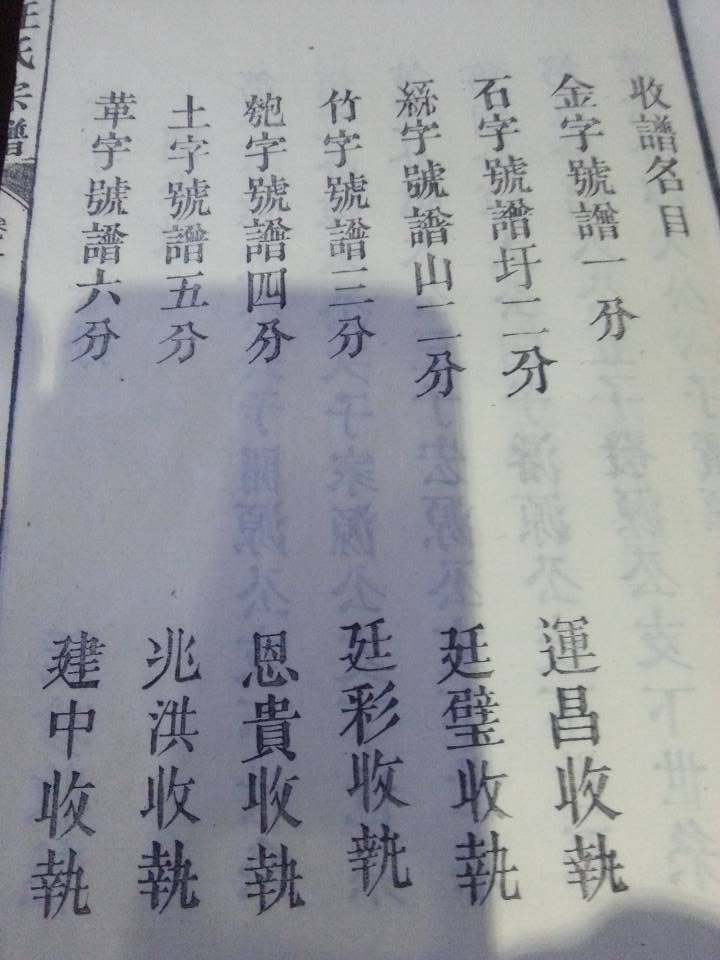 收譜名目
金字號譜一分
運昌收執
石字號譜圩二分
絲字號譜山二分
廷璧收執
竹字號譜三分
廷彩收執
匏字號譜四分
恩貴收執
土字號譜五分
兆洪收執
革字號譜六分
建中收執
汪氏宗譜